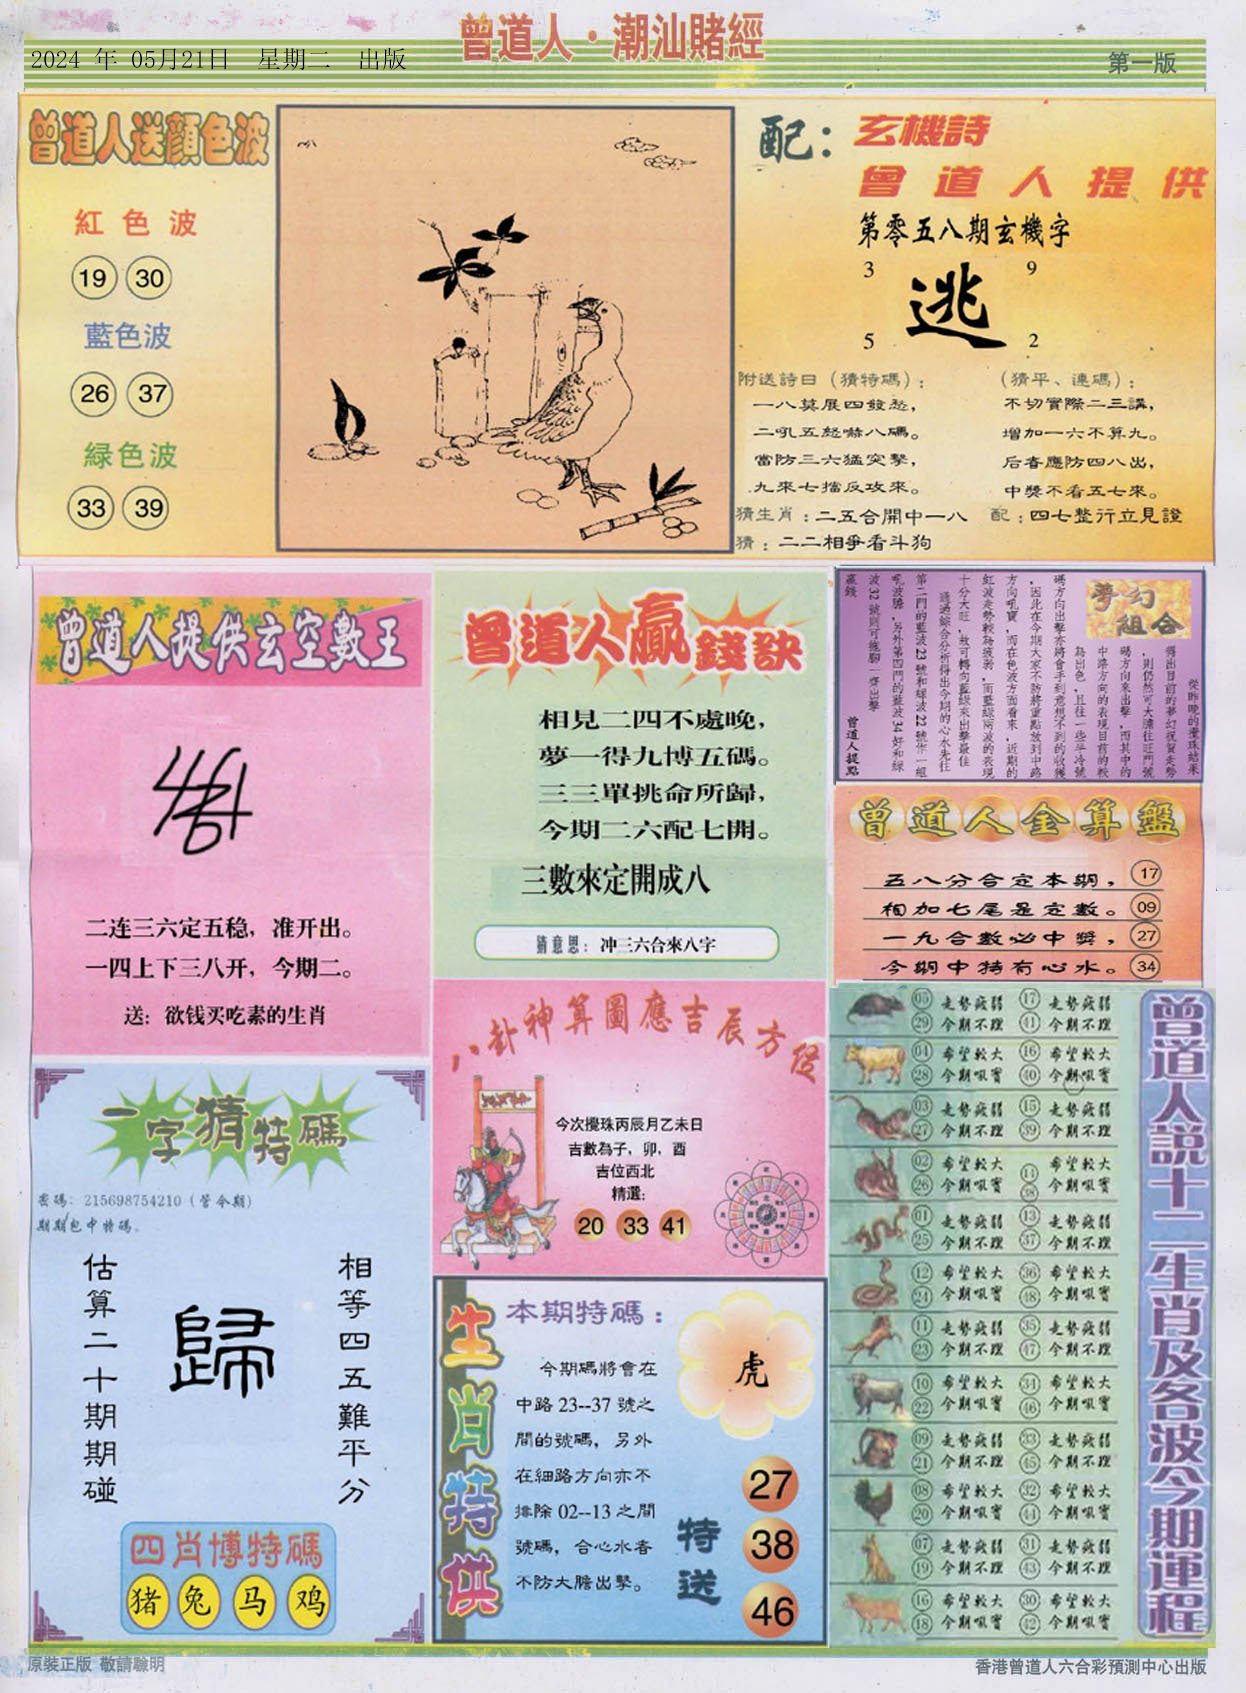 曾道人·潮汕賭經
2024 年 05月21日 星期二 出版
第一版
曾道人送顏色波
紅色波
19 30
藍色波
26 37
綠色波
33 39
配：玄機詩
曾道人提供
第零五八期玄機字
3 9
逃
5 2
附送詩曰（猜特碼）：
一八莫展四發愁，
二吼五怒嚇八碼。
當防三六猛突擊，
九來七擋反攻來。
猜生肖：二五合開中一八
猜：二二相爭看斗狗
（猜平、連碼）：
不切實際二三講，
增加一六不算九。
后者應防四八出，
中獎不看五七來。
配：四七整行立見證
曾道人提供玄空數王
二连三六定五稳，准开出。
一四上下三八开，今期二。
送：欲钱买吃素的生肖
曾道人贏錢訣
相見二四不處晚，
夢一得九博五碼。
三三單挑命所歸，
今期二六配七開。
三數來定開成八
猜意思：冲三六合來八字
夢幻組合
從昨晚的攪珠結果
得出目前的夢幻祝賀走勢
，則仍然可大膽往旺門號
碼方向來出擊，而其中的
中路方向的表現目前的較
為出色，且往一些半冷號
碼方向出擊亦將會手到意想不到的收獲
，因此在今期大家不防將重點放到中路
方向吼寶，而在色波方面看來，近期的
紅波走勢較為疲弱，而藍綠兩波的表現
十分大旺，故可轉向藍綠來出擊最佳
通過綜合分析得出今期的心水先往
第二門的藍波23號和綠波22號作一組
吼波膽，另外第四門的藍波34好和綠
波32號則可拖腳一齊出擊
贏錢
曾道人提點
曾道人金算盤
五八分合定本期， 17
相加七尾是定數。 09
一九合數必中獎， 27
今期中特有心水。 34
一字猜特碼
密碼：215698754210（管今期）
期期包中特碼。
估算二十期期碰
歸
相等四五難平分
四肖博特碼
猪 兔 马 鸡
八卦神算圖應吉辰方位
今次攪珠丙辰月乙未日
吉數為子，卯，酉
吉位西北
精選：
20 33 41
生肖特供
本期特碼：
今期碼將會在
中路 23--37 號之
間的號碼，另外
在細路方向亦不
排除 02--13 之間
號碼，合心水者
不防大膽出擊。
虎
特送
27
38
46
曾道人説十二生肖及各波今期運程
05 走勢疲弱 17 走勢疲弱
29 今期不理 41 今期不理
04 希望較大 16 希望較大
28 今期吼寶 40 今期吼寶
03 走勢疲弱 15 走勢疲弱
27 今期不理 39 今期不理
02 希望較大 14 希望較大
26 今期吼寶 38 今期吼寶
01 走勢疲弱 13 走勢疲弱
25 今期不理 37 今期不理
12 希望較大 36 希望較大
24 今期吼寶 48 今期吼寶
11 走勢疲弱 35 走勢疲弱
23 今期不理 47 今期不理
10 希望較大 34 希望較大
22 今期吼寶 46 今期吼寶
09 走勢疲弱 33 走勢疲弱
21 今期不理 45 今期不理
08 希望較大 32 希望較大
20 今期吼寶 44 今期吼寶
07 走勢疲弱 31 走勢疲弱
19 今期不理 43 今期不理
16 希望較大 30 希望較大
18 今期吼寶 42 今期吼寶
原裝正版 敬請聰明
香港曾道人六合彩預測中心出版